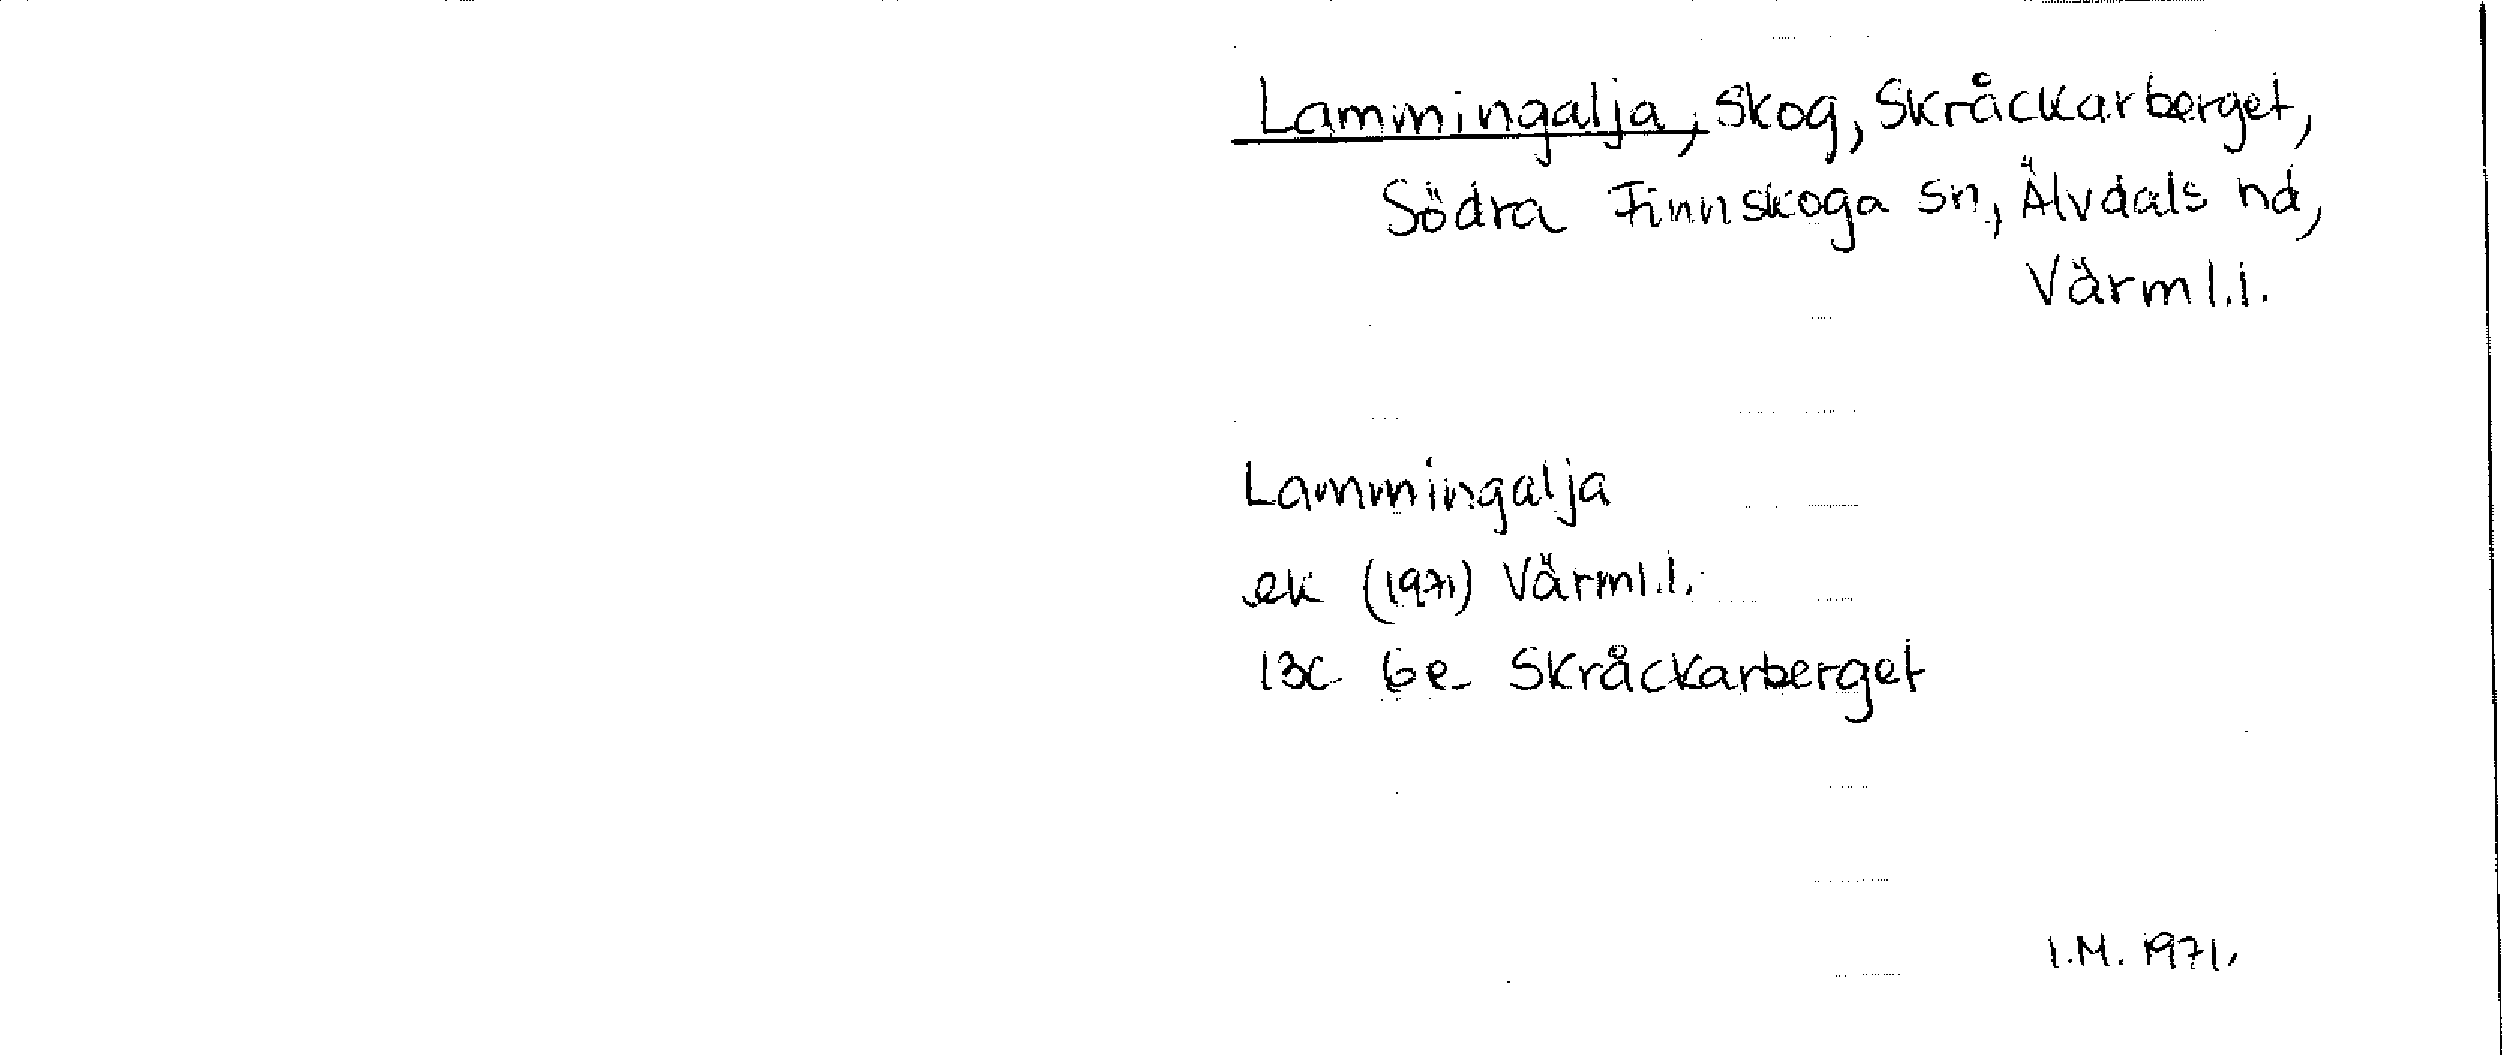 Lammingalja, Skog, Skråckarberget,
Södra Finnskoga sn, Älvdals hd,
Värml.l.
Lammingalja
ek (1971) Värml.l.
13c 6e Skråckarberget
I.M. 1971.